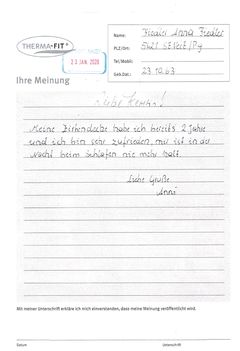 THERMA-FIT®
23. JAN. 2020
Name: Anna
PLZ/Ort:
Tel/Mobil:
Geb.Dat.: 23.10.63
Ihre Meinung
Liebe
Meine Zirbendecke habe ich bereits 2 Jahre
und ich bin sehr zufrieden, mir ist in der
Nacht beim Schlafen nie mehr kalt.
Liebe Grüße
Anni
Mit meiner Unterschrift erkläre ich mich einverstanden, dass meine Meinung veröffentlicht wird.
Datum
Unterschrift